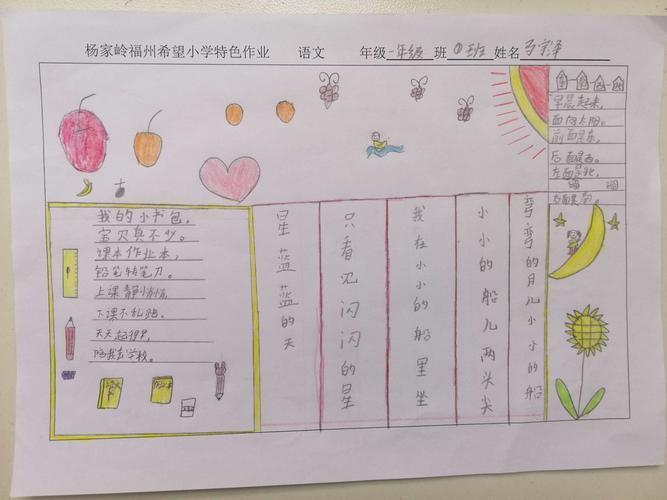 杨家岭福州希望小学特色作业 语文 年级一年级 班①班 姓名
早晨起来,
面向太阳。
前面是东,
后面是西。
左面是北,
我的小书包,
宝贝真不少。
课本作业本,
铅笔转笔刀。
上课静悄悄,
下课不乱跑。
天天起得早,
陪我去学校。
弯弯的月儿小小的船
小小的船儿两头尖
我在小小的船里坐
只看见闪闪的星
星蓝蓝的天